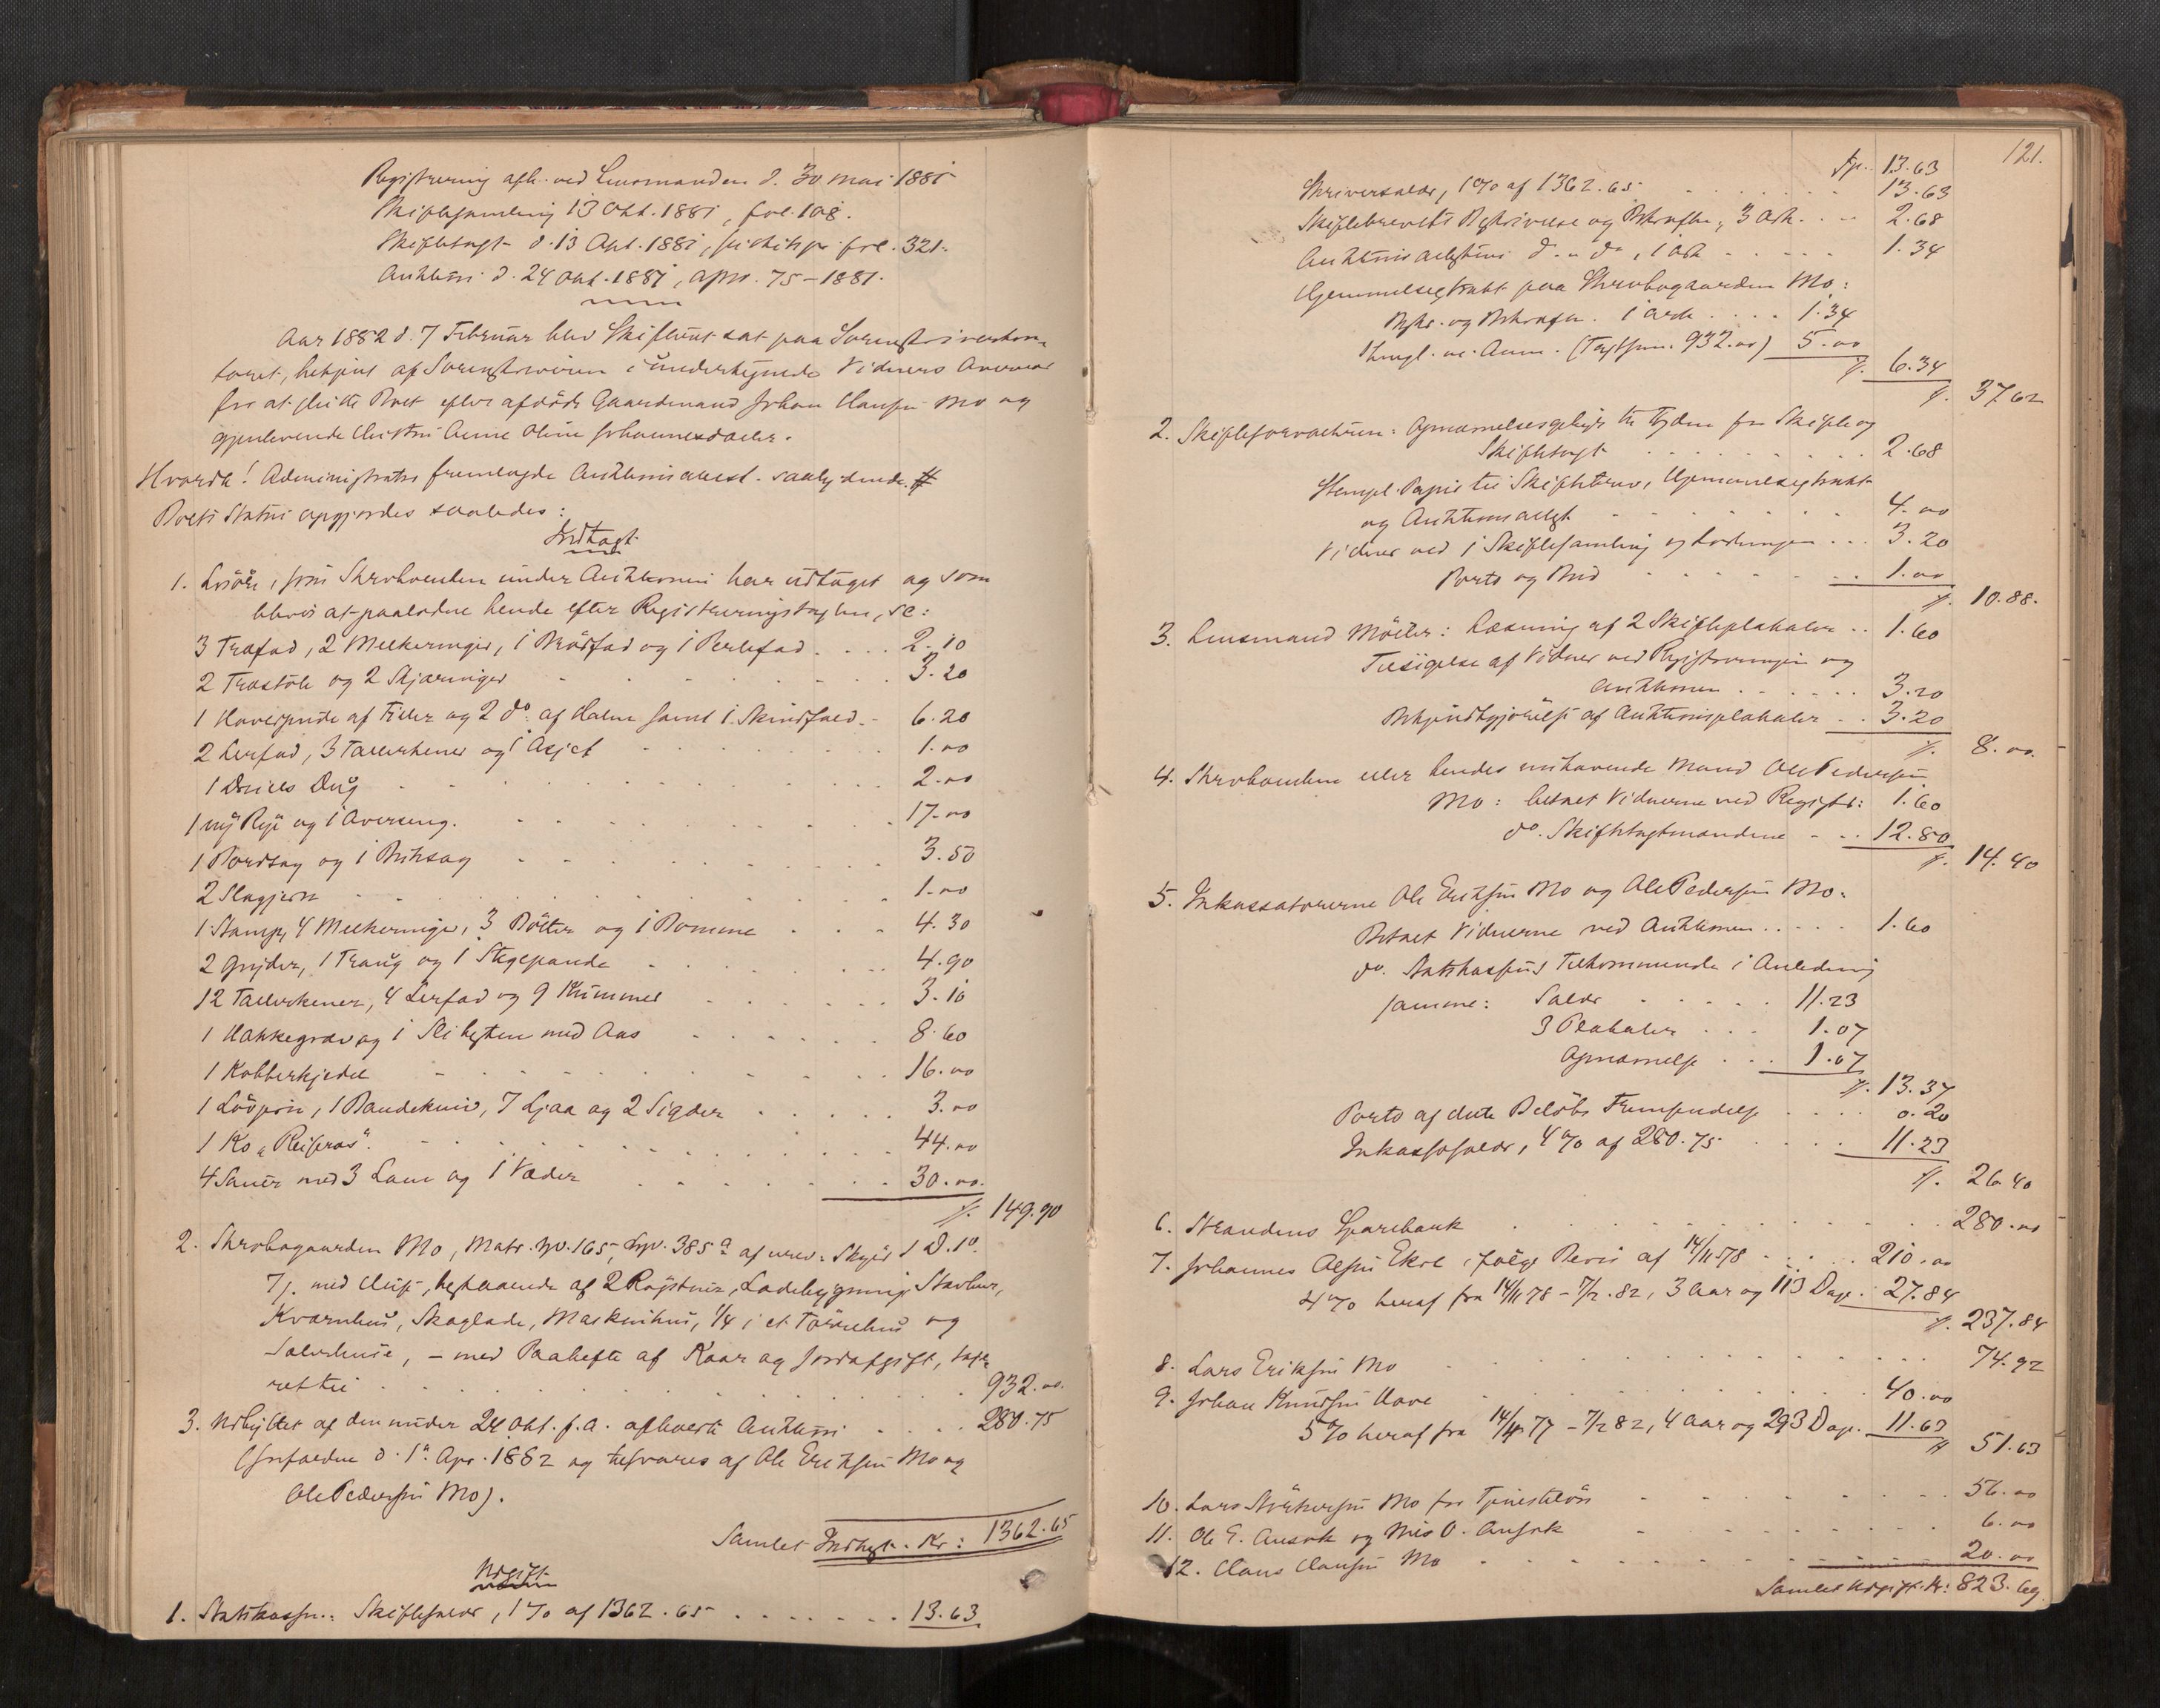 Registrering afh. ved Lensmanden d. 30 Mai 1881
Skiftesamling 13 Okt. 1881, fol. 108.
Skiftetaxt d. 13 Apl. 1881, fol. 321.
Auktion d. 24 Okt. 1881, 75-1881.
Aar 1882 d. 7 Februar blev Skifteret sat paa Sorenskriverkon-
toret, betjent af Sorenskriveren i undertegnede Vidners Overvær
for at slutte Boet efter afdøde Gaardmand Johan Hansen Mo og
gjenlevende Anne Oline Johannesdatter.
Hvorda! Administrator fremlagde Auktions saalydende #
Boets Status opgjordes saaledes:
Indtægt
1. Løsöre, som Skrobenken under Auktionen har udtaget og som
blevis at paalodne hende efter Registreringstaxten, se:
3 Træfad, 2 Melkeringer, 1 Brödfad og 1 . . . . 2.10
2 Træstole og 2 . . . 3.20
1 af Filler og 2 do. af Halm samt 1 Skindfæld . - 6.20
2 Lerfad, 3 Tallerkener og 1 Asjet . . . 1.00
1 Dreiels Dug . . . 2.00
1 ny Rye og 1 . . . 17.00
1 Bordsag og 1 . . . 3.50
2 . . . 1.00
1 Stamp, 4 Melkeringer, 3 Bötter og 1 Bomme . . . 4.30
2 Gryder, 1 Traug og 1 Stegepande . . . 4.90
12 Tallerkener, 4 Lerfad og 9 Kummer . . . 3.10
1 Hakkegrev og 1 med Aas . . . 8.60
1 Kobberkjedel . . . 16.00
1 Lövjern, 1 Baandekniv, 7 Ljaa og 2 Sigder . . . 3.00
1 Ko „Reisros“. . . . 44.00
4 Sauer med 3 Lam og 1 Væder . . . 30.00.
/. 149.90
2. Skrobogaarden Mo, Matr. No. 165, Lpn. 385a af urev. Skyld 1 D. 1 O.
7 /. med Huse, bestaaende af 2 Röjstuer, Ladebygning, Stabur,
Kvarnhus, Skoglade, Maskinhus, 1/4 i et Törrehus og
- med Paahefte af Kaar og Jordafgift,
. . . 932.00.
3. Udbyttet af den under 24 Okt. f.a. afholdte Auktion . . . . 280.75
(forfalden d. 1ste Apr. 1882 og tilsvares af Ole Eriksen Mo og
Ole Pedersen Mo).
Samlet Indtægt. Kr: 1362.65
Udgift
1. Statskassen: Skiftesalær, 1% af 1362.65 . . . 13.63
121.
Tp. 13.63
Skriversalær, 1% af 1362.65 . . . 13.63
Skiftebrevets Beskrivelse og Bekræftn., 3 Ark. . . 2.68
Auktions do. do., 1 Ark . . . 1.34
Hjemmelsextrakt paa Skrobogaarden Mo:
Beskr. og Bekræftn. 1 Ark . . . . 1.34
Thingl. m. Anm. (Taxtsum. 932.00) 5.00
/. 6.34
/. 37.62
2. Skifteforvalteren: til Tjden for Skifte og
Skiftetaxt . . . 2.68
Stempl. Papir til Skiftebrev, Hjemmelsextrakt
og . . . 4.00
Vidner ved 1 Skiftesamling og . . . 3.20
Porto og Bud . . . 1.00
/. 10.88.
3. Lensmand Möller: Læsning af 2 Skifteplakater . . 1.60
Tilsigelse af Vidner ved Registreringen og
Auktionen . . . 3.20
Bekjendtgjörelse af Auktionsplakater . . 3.20
/. 8.00.
4. eller hendes Mand Ole Pedersen
Mo: betalt Vidnerne ved Registr: 1.60
do. Skiftetaxtmændene . . . 12.80
/. 14.40
5. Inkassatorerne Ole Eriksen Mo og Ole Pedersen Mo:
Betalt Vidnerne ved Auktionen . . . . . 1.60
do. Statskassens Tilkommende i Anledning
samme: Salær . . . 11.23
3 Plakater . . . 1.07
Opnævnelse . . . 1.07
/. 13.37
Porto af dette Belöbs Fremsendelse . . . . 0.20
Inkassosalær, 4% af 280.75 . . . 11.23
/. 26.40
6. Strandens Sparebank . . . 280.00
7. Johannes Olsen Ekre, ifölge Bevis af 14/11 1878 . . . 210.00
4% heraf fra 14/11 78 - 7/2. 82, 3 Aar og 113 Dage . . 27.84
/. 237.84
8. Lars Eriksen Mo . . . 74.92
9. Johan Knudsen Hove . . . 40.00
5% heraf fra 77 - 7/2 82, 4 Aar og 293 Dage. 11.63
/. 51.63
10. Lars Mo for Tjenestelön . . . 56.00
11. Ole E. og O. . . . 6.00
12. Claus Hansen Mo . . . 20.00
Samlet Udgift. Kr: 823.69